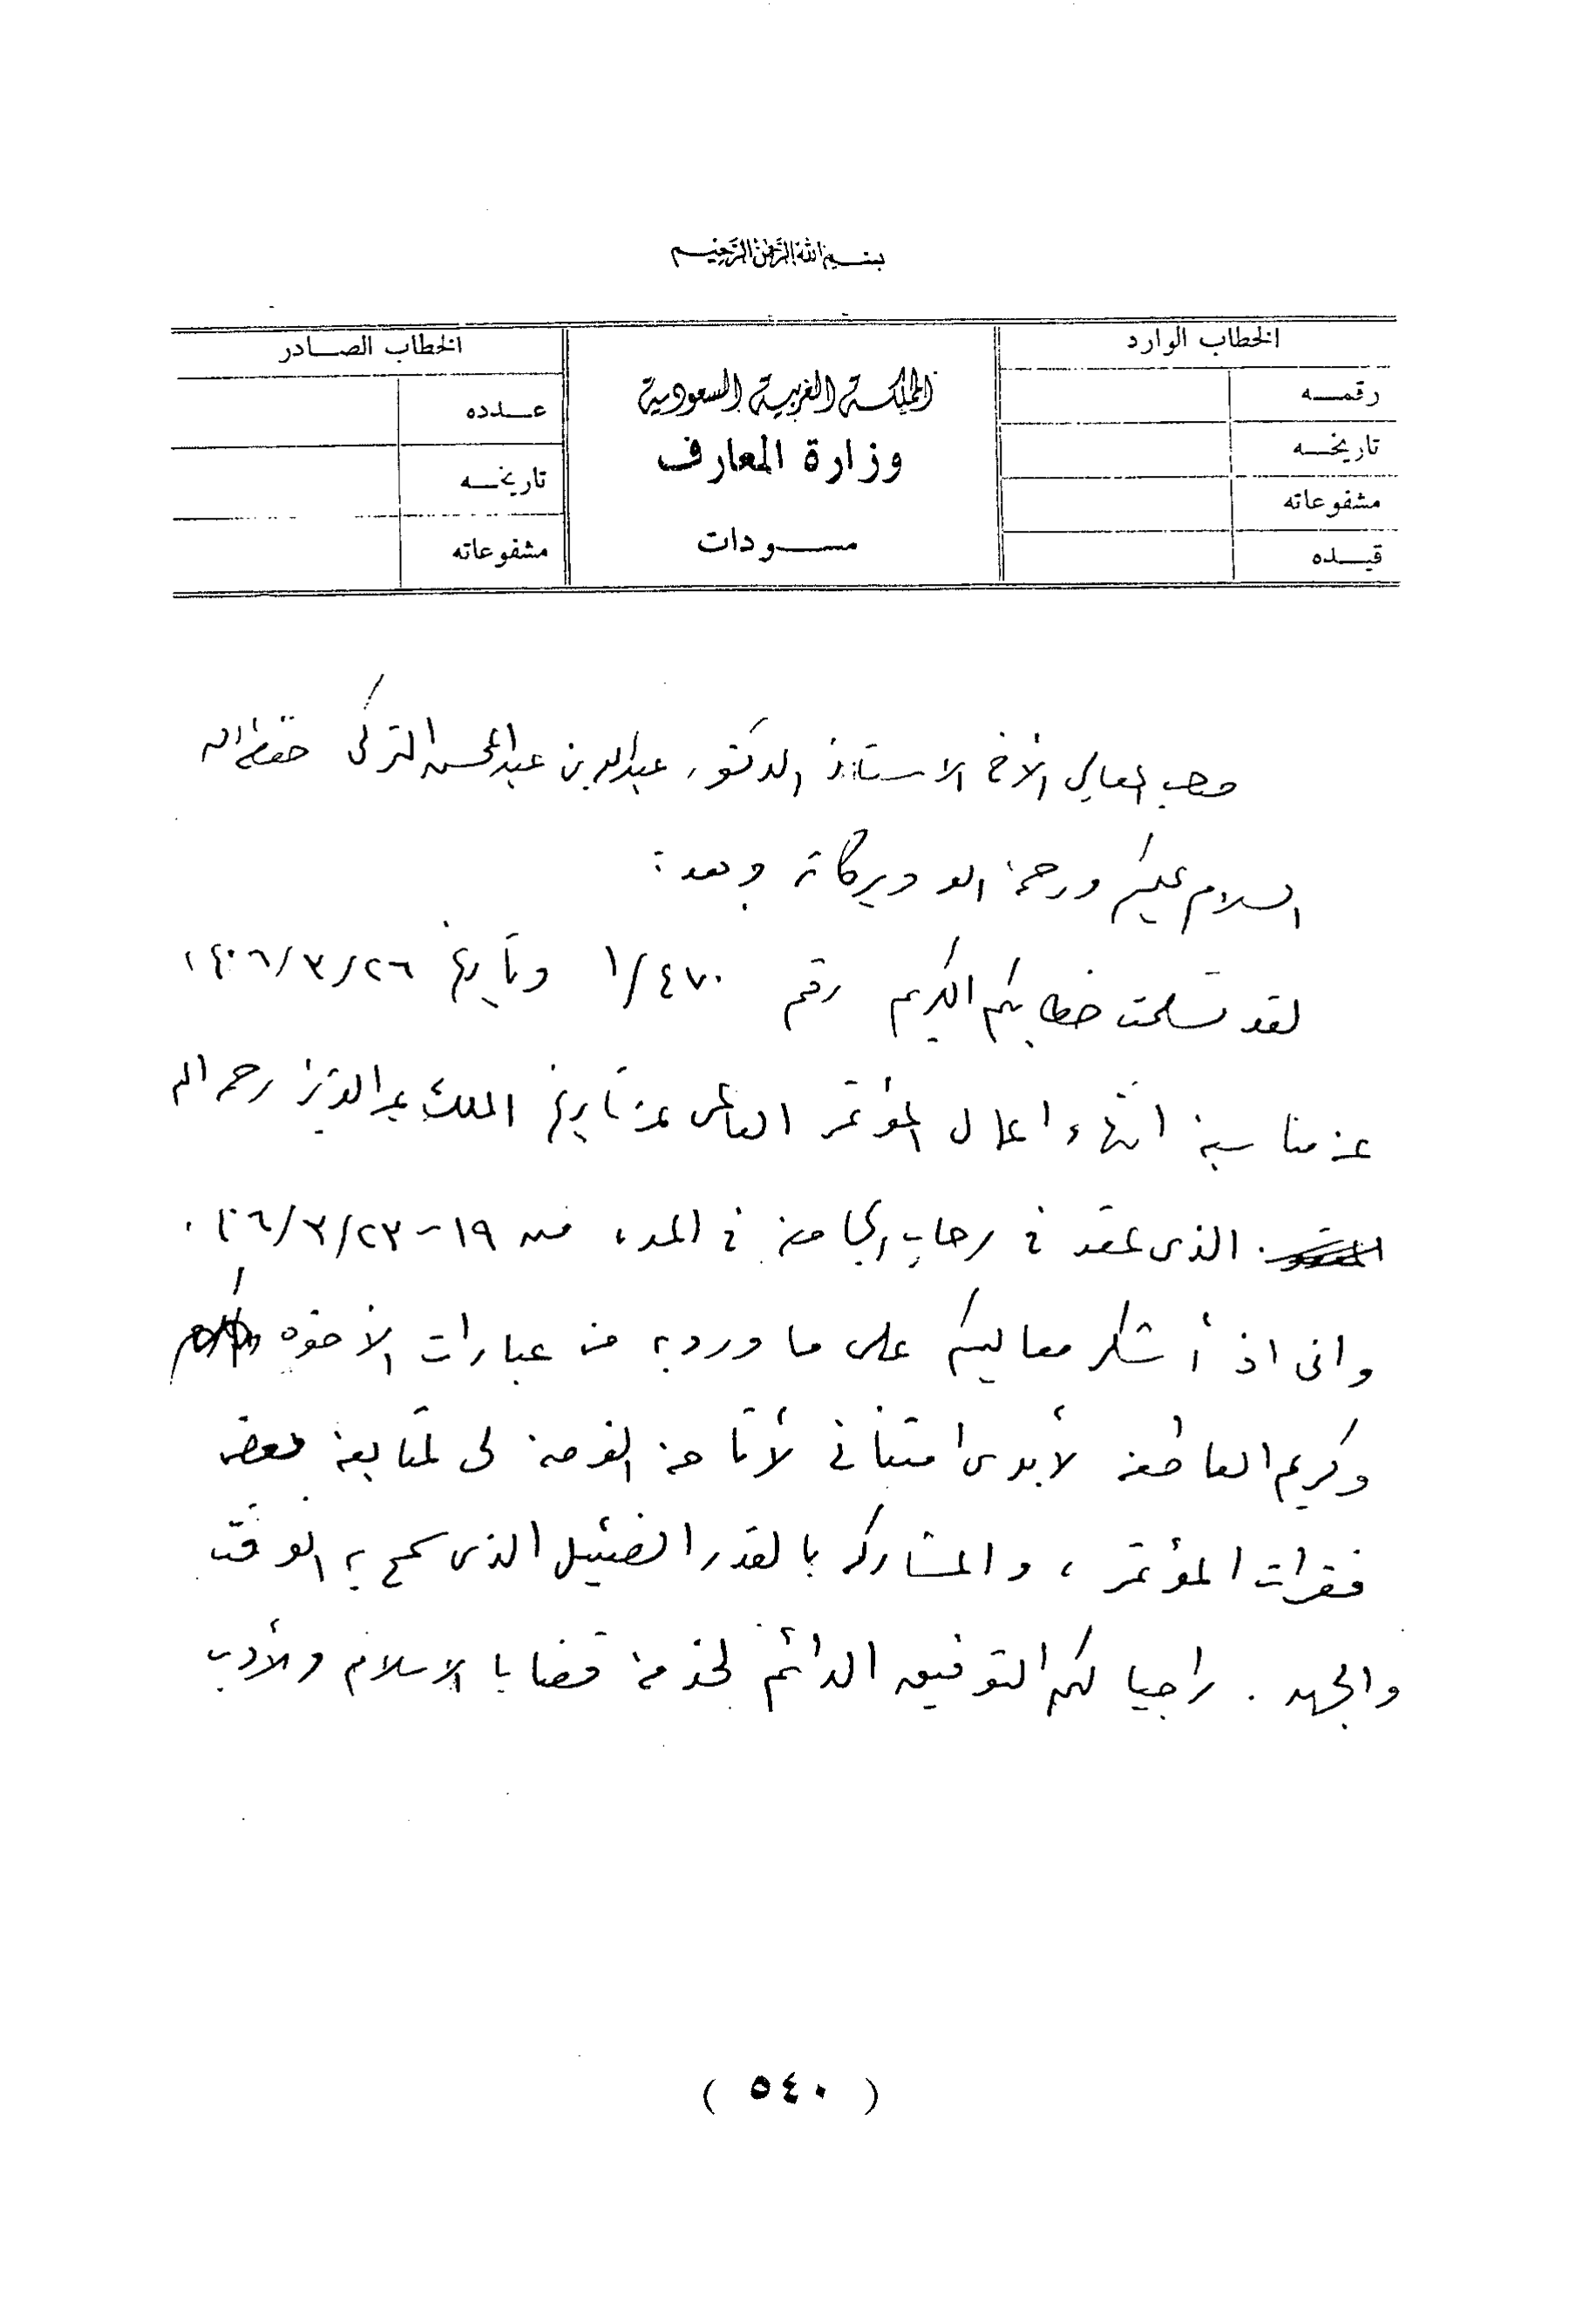 بسم الله الرحمن الرحيم
الخطاب الوارد
رقمه
تاريخه
مشفوعاته
قيده
المملكة العربية السعودية
وزارة المعارف
مسودات
الخطاب الصادر
عدده
تاريخه
مشفوعاته
صاحب المعالي الأخ الاستاذ الدكتور عبدالله بن عبدالمحسن التركي حفظه الله
السلام عليكم ورحمة الله وبركاته وبعد :
لقد تسلمت خطابكم الكريم رقم ١/٤٧٠ وتاريخ ١٤٠٦/٣/٢٦
عن مناسبة انتهاء اعمال المؤتمر العالمى عن تاريخ الملك عبدالعزيز رحمه الله
الذى عقد فى رحاب الجامعة فى المدة من ١٩-١٤٠٦/٣/٢٣
وانى اذ أشكر معاليكم على ما ورد به من عبارات الأخوه
وكريم العاطفة لأبدى امتنانى لأتاحة الفرصة لى لمتابعة بعض
فقرات المؤتمر ، والمشاركة بالقدر الضئيل الذى سمح به الوقت
والجهد . راجيا لكم التوفيق الدائم لخدمة قضايا الاسلام والأدب
( ٥٤٠ )